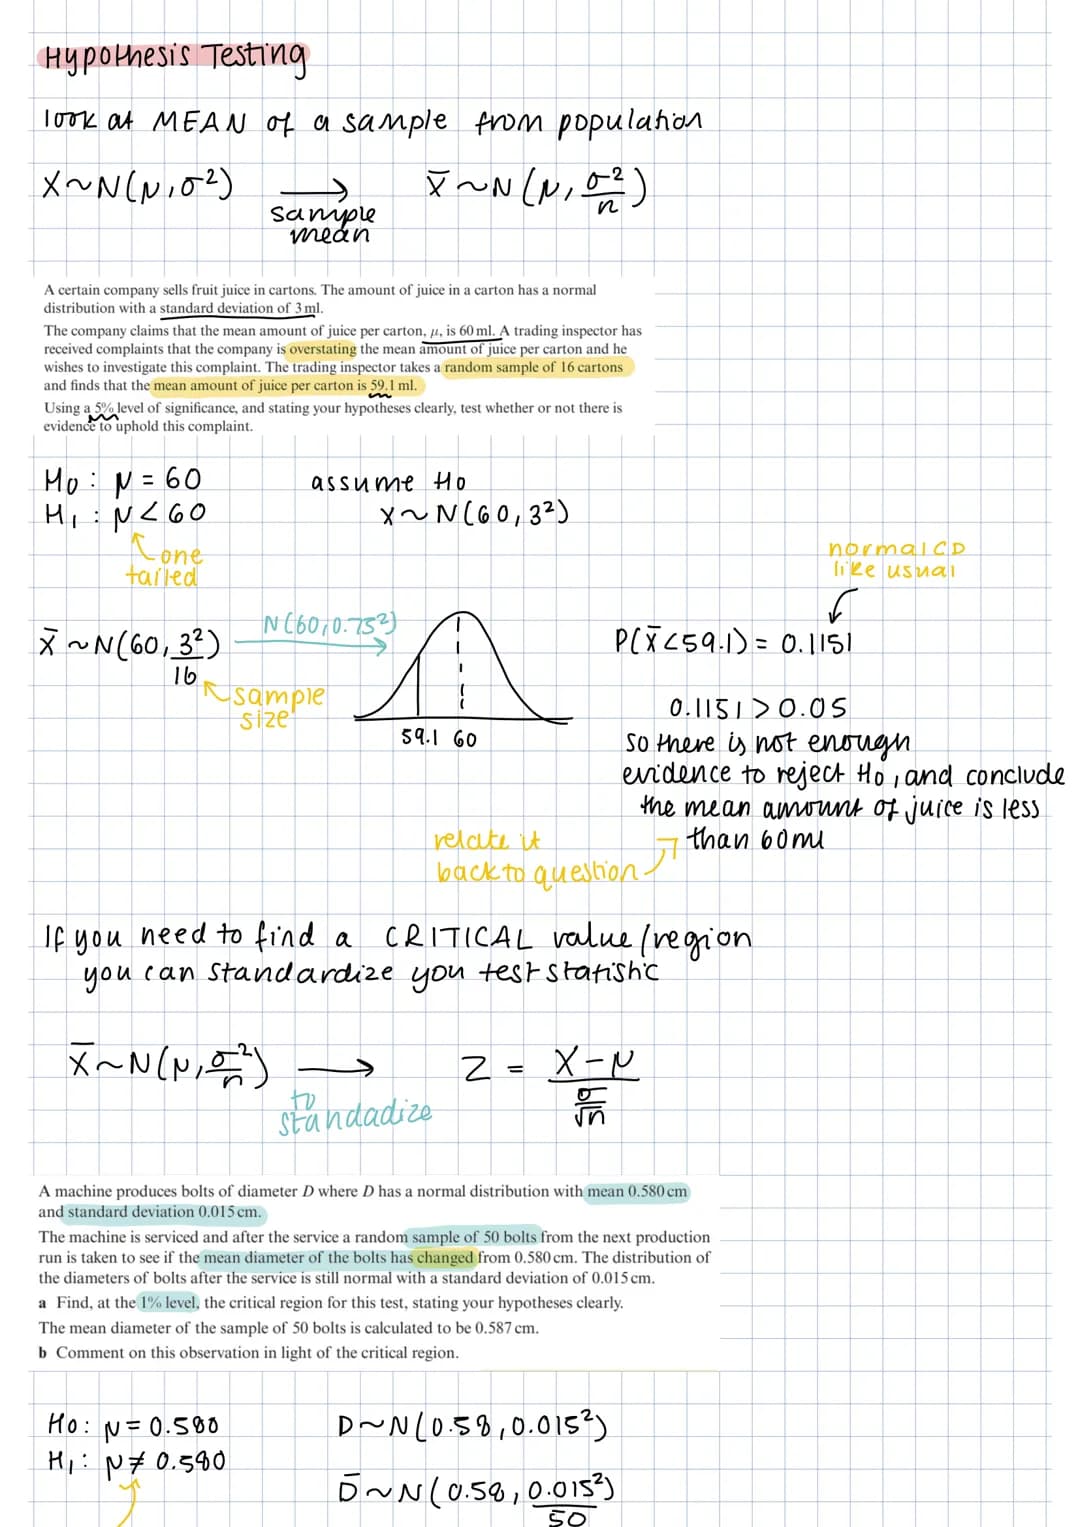 Hypothesis Testing
look at MEAN of a sample from population
X~N(μ,σ²) → sample mean X̄~N(μ, σ²/n)
A certain company sells fruit juice in cartons. The amount of juice in a carton has a normal
distribution with a standard deviation of 3 ml.
The company claims that the mean amount of juice per carton, μ, is 60 ml. A trading inspector has
received complaints that the company is overstating the mean amount of juice per carton and he
wishes to investigate this complaint. The trading inspector takes a random sample of 16 cartons
and finds that the mean amount of juice per carton is 59.1 ml.
Using a 5% level of significance, and stating your hypotheses clearly, test whether or not there is
evidence to uphold this complaint.
H₀: μ = 60
H₁: μ < 60
one
tailed
assume H₀
X~N(60,3²)
X̄~N(60, 3²/16)
sample
size
N(60,0.75²)
59.1 60
normalCD
like usual
P(X̄<59.1) = 0.1151
0.1151 > 0.05
so there is not enough
evidence to reject H₀, and conclude
the mean amount of juice is less
than 60ml
relate it
back to question
If you need to find a CRITICAL value/region
you can standardize you test statistic
X̄~N(μ, σ²/n) → Z = (X-μ)/(σ/√n)
to
standadize
A machine produces bolts of diameter D where D has a normal distribution with mean 0.580 cm
and standard deviation 0.015 cm.
The machine is serviced and after the service a random sample of 50 bolts from the next production
run is taken to see if the mean diameter of the bolts has changed from 0.580 cm. The distribution of
the diameters of bolts after the service is still normal with a standard deviation of 0.015 cm.
a Find, at the 1% level, the critical region for this test, stating your hypotheses clearly.
The mean diameter of the sample of 50 bolts is calculated to be 0.587 cm.
b Comment on this observation in light of the critical region.
H₀: μ = 0.580
H₁: μ ≠ 0.580
D~N(0.58, 0.015²)
D̄~N(0.58, 0.015²/50)